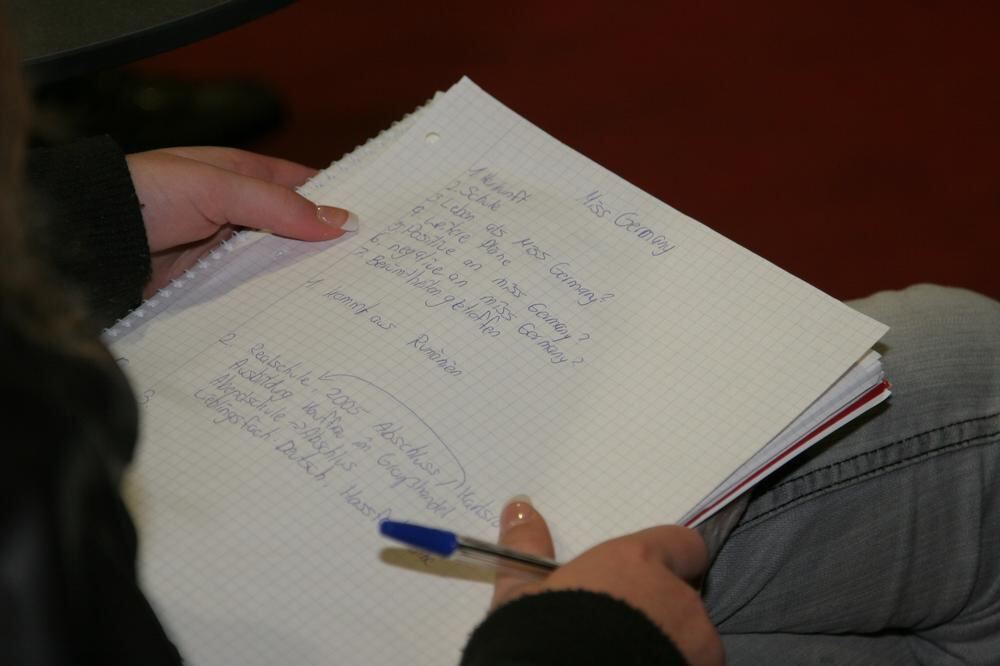 Miss Germany
1. Herkunft
2. Schule
3. Leben als Miss Germany?
4. weitere Pläne
5. Positive an miss Germany?
6. negative an miss Germany?
7. Berühmtheiten getroffen
1. kommt aus Rumänien
2. Realschule 2005 Abschluss / Karlsru
Ausbildung Kauffrau im Grosshandel
Abendschule → Abschluss
Lieblingsfach: Deutsch,
3